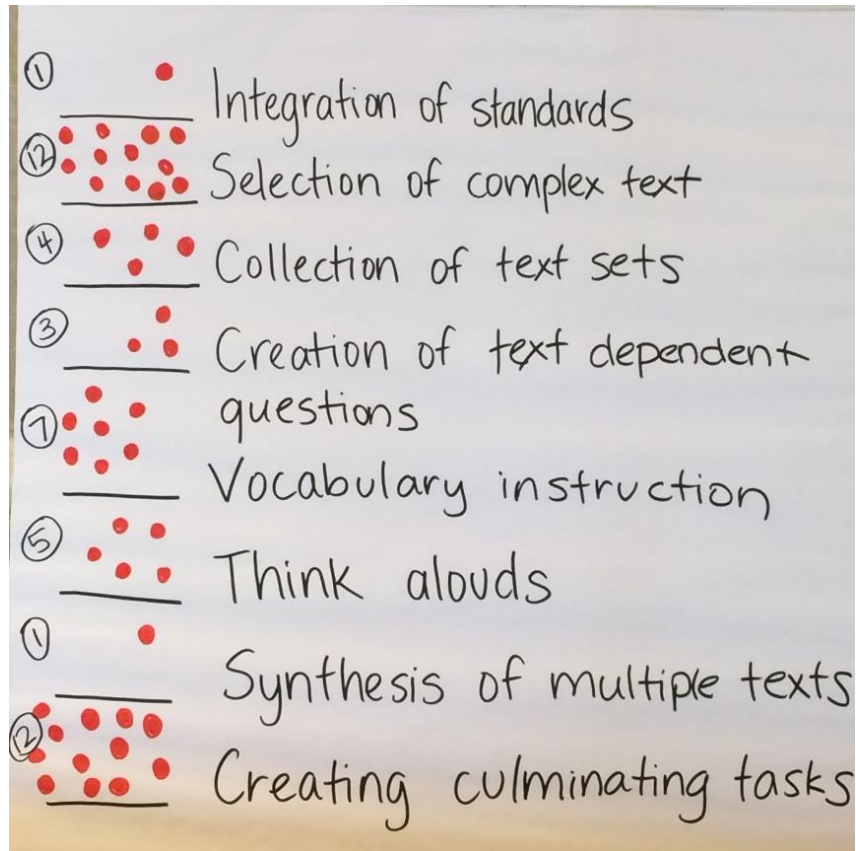 ① Integration of standards
⑫ Selection of complex text
④ Collection of text sets
③ Creation of text dependent
questions
⑦ Vocabulary instruction
⑤ Think alouds
① Synthesis of multiple texts
⑫ Creating culminating tasks